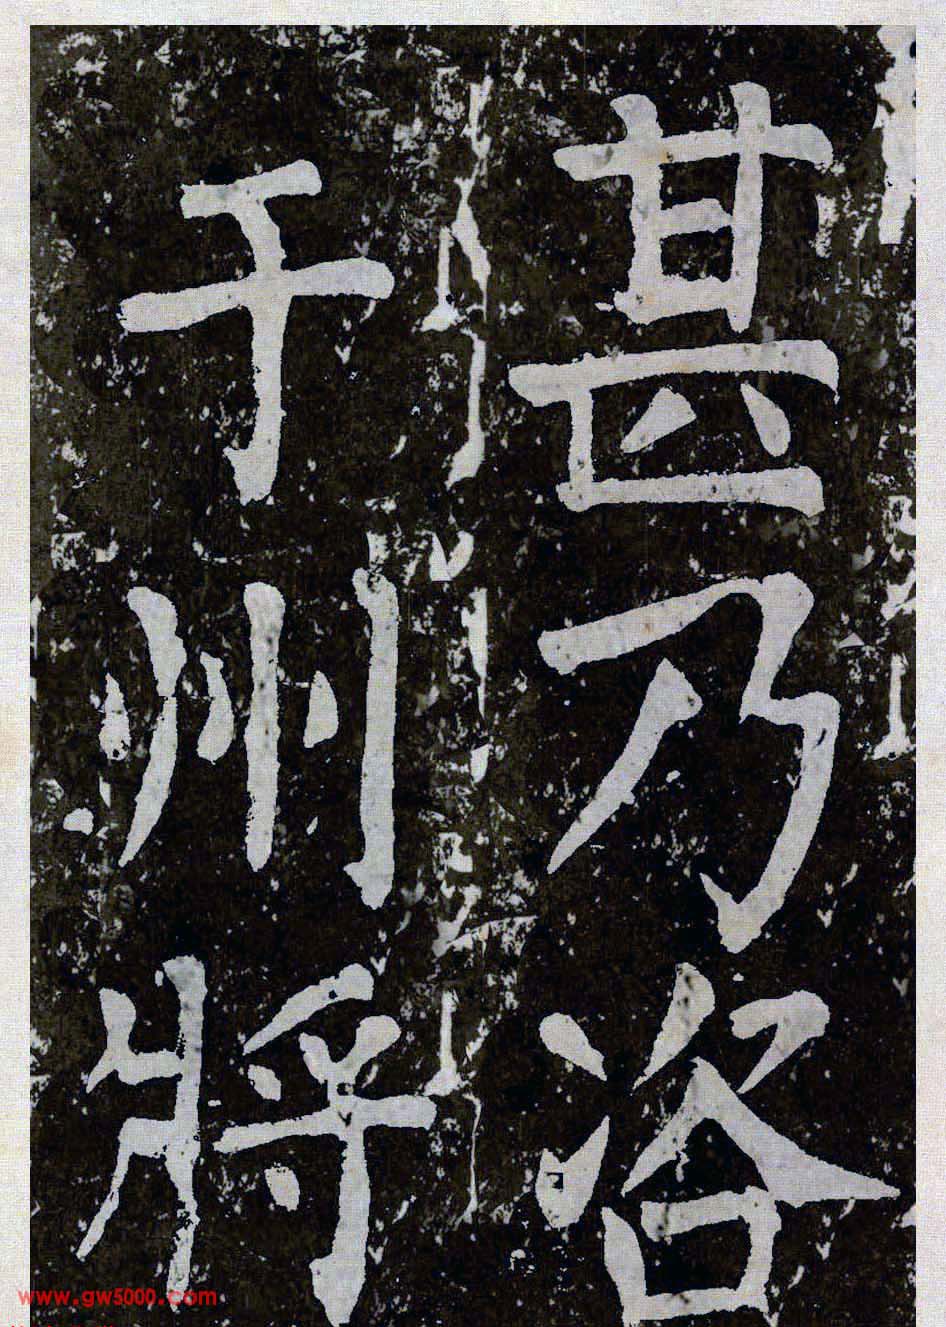 甚乃咨
于州將
www.gw5000.com